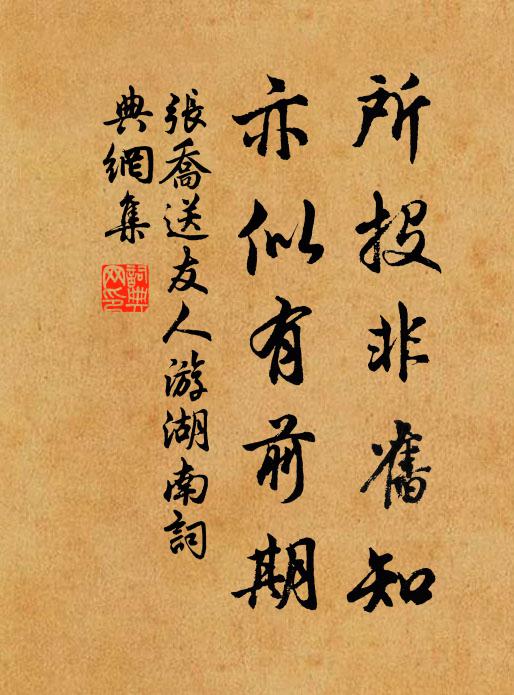 所投非舊知
亦似有前期
張喬送友人游湖南詞
典網集
詞典网印